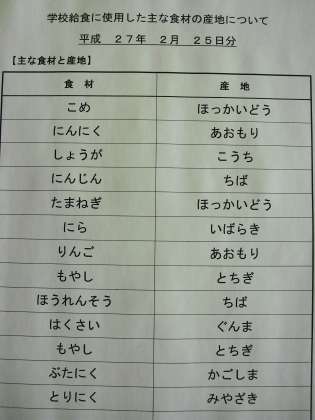 学校給食に使用した主な食材の産地について
平成 27年 2月 25日分
【主な食材と産地】
食 材 産 地
こめ ほっかいどう
にんにく あおもり
しょうが こうち
にんじん ちば
たまねぎ ほっかいどう
にら いばらき
りんご あおもり
もやし とちぎ
ほうれんそう ちば
はくさい ぐんま
もやし とちぎ
ぶたにく かごしま
とりにく みやざき